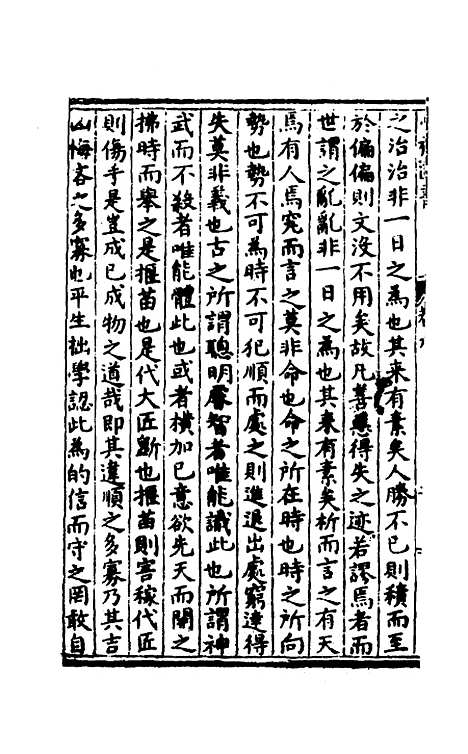 之治治非一日之為也其来有素矣人勝不已則積而至
於偏偏則文没不用矣故凡善惡得失之迹若謬焉者而
世謂之亂亂非一日之為也其来有素矣析而言之有天
焉有人焉究而言之莫非命也命之所在時也時之所向
勢也勢不可為時不可犯順而處之則進退出處窮達得
失莫非義也古之所謂聰明睿智者唯能識此也所謂神
武而不殺者唯能體此也或者横加己意欲先天而開之
拂時而舉之是揠苗也是代大匠斲也揠苗則害稼代匠
則傷手是豈成己成物之道哉即其違順之多寡乃其吉
凶悔吝之多寡也平生拙學認此為的信而守之罔敢自